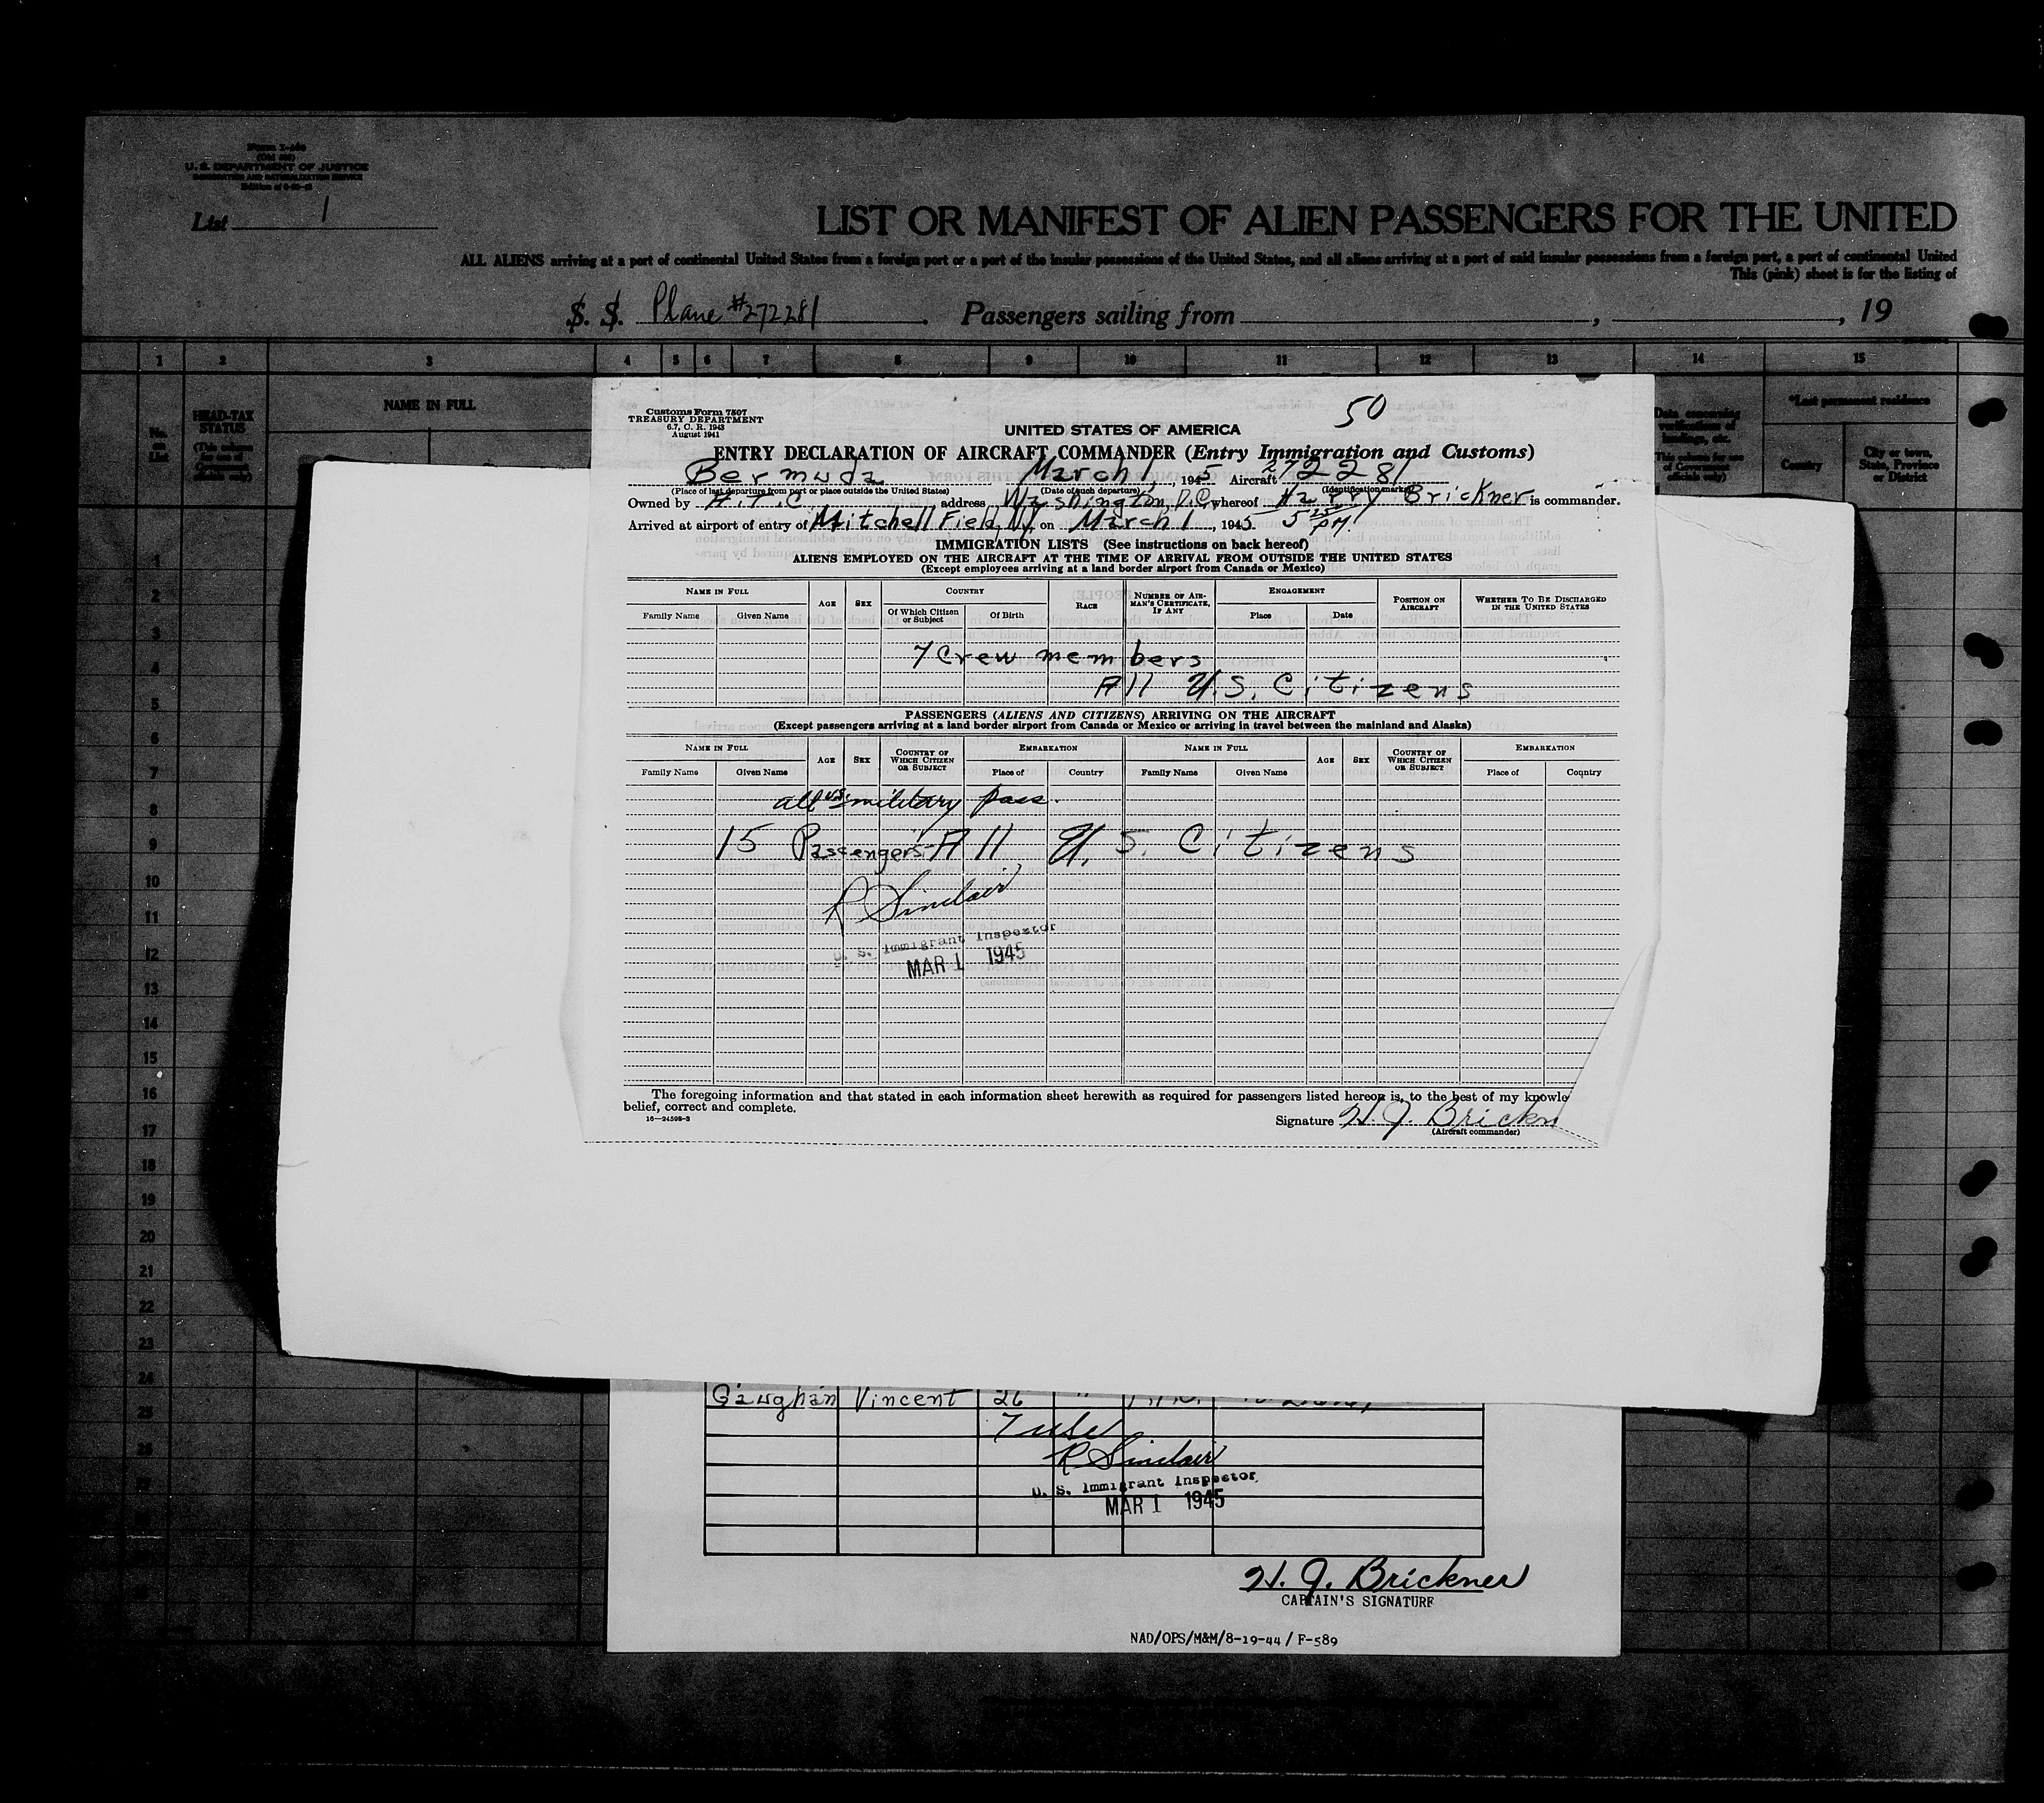 U. S. DEPARTMENT OF JUSTICE
IMMIGRATION AND NATURALIZATION SERVICE
List 1
LIST OR MANIFEST OF ALIEN PASSENGERS FOR THE UNITED
ALL ALIENS arriving at a port of continental United States from a foreign port or a port of the insular possessions of the United States, and all aliens arriving at a port of said insular possessions from a foreign port, a port of continental United
This (pink) sheet is for the listing of
S. S. Plane #272281 . Passengers sailing from , , 19
1 2 3 4 5 6 7 8 9 10 11 12 13 14 15
No. on List
HEAD-TAX STATUS
NAME IN FULL
*Last permanent residence
Country
City or town, State, Province or District
Customs Form 7507
TREASURY DEPARTMENT
6.7, C. R. 1943
August 1941
50
UNITED STATES OF AMERICA
ENTRY DECLARATION OF AIRCRAFT COMMANDER (Entry Immigration and Customs)
Bermuda March 1, 1945 Aircraft 272281
(Place of last departure from port or place outside the United States) (Date of such departure) (Identification marks)
Owned by A.T.C. address Washington, D.C. whereof Harry Brickner is commander.
Arrived at airport of entry of Mitchell Field, NY on March 1, 1945. 5 25 PM
IMMIGRATION LISTS (See instructions on back hereof)
ALIENS EMPLOYED ON THE AIRCRAFT AT THE TIME OF ARRIVAL FROM OUTSIDE THE UNITED STATES
(Except employees arriving at a land border airport from Canada or Mexico)
NAME IN FULL
Family Name Given Name
AGE
SEX
COUNTRY
Of Which Citizen or Subject
Of Birth
RACE
NUMBER OF AIRMAN'S CERTIFICATE, IF ANY
ENGAGEMENT
Place Date
POSITION ON AIRCRAFT
WHETHER TO BE DISCHARGED IN THE UNITED STATES
7 Crew members
All U.S. Citizens
PASSENGERS (ALIENS AND CITIZENS) ARRIVING ON THE AIRCRAFT
(Except passengers arriving at a land border airport from Canada or Mexico or arriving in travel between the mainland and Alaska)
NAME IN FULL AGE SEX COUNTRY OF WHICH CITIZEN OR SUBJECT EMBARKATION NAME IN FULL AGE SEX COUNTRY OF WHICH CITIZEN OR SUBJECT EMBARKATION
Family Name Given Name Place of Country Family Name Given Name Place of Country
all U.S. military pass.
15 Passengers - All U.S. Citizens
R Sinclair
U. S. Immigrant Inspector
MAR 1 1945
The foregoing information and that stated in each information sheet herewith as required for passengers listed hereon is, to the best of my knowle
belief, correct and complete.
16—24598-3
Signature H. J. Brickn
(Aircraft commander)
1
2
3
4
5
6
7
8
9
10
11
12
13
14
15
16
17
18
19
20
21
22
23
24
25
26
Gaughan Vincent 26 "
R Sinclair
U. S. Immigrant Inspector
MAR 1 1945
H. J. Brickner
CAPTAIN'S SIGNATURE
NAD/OPS/M&M/8-19-44 / F-589